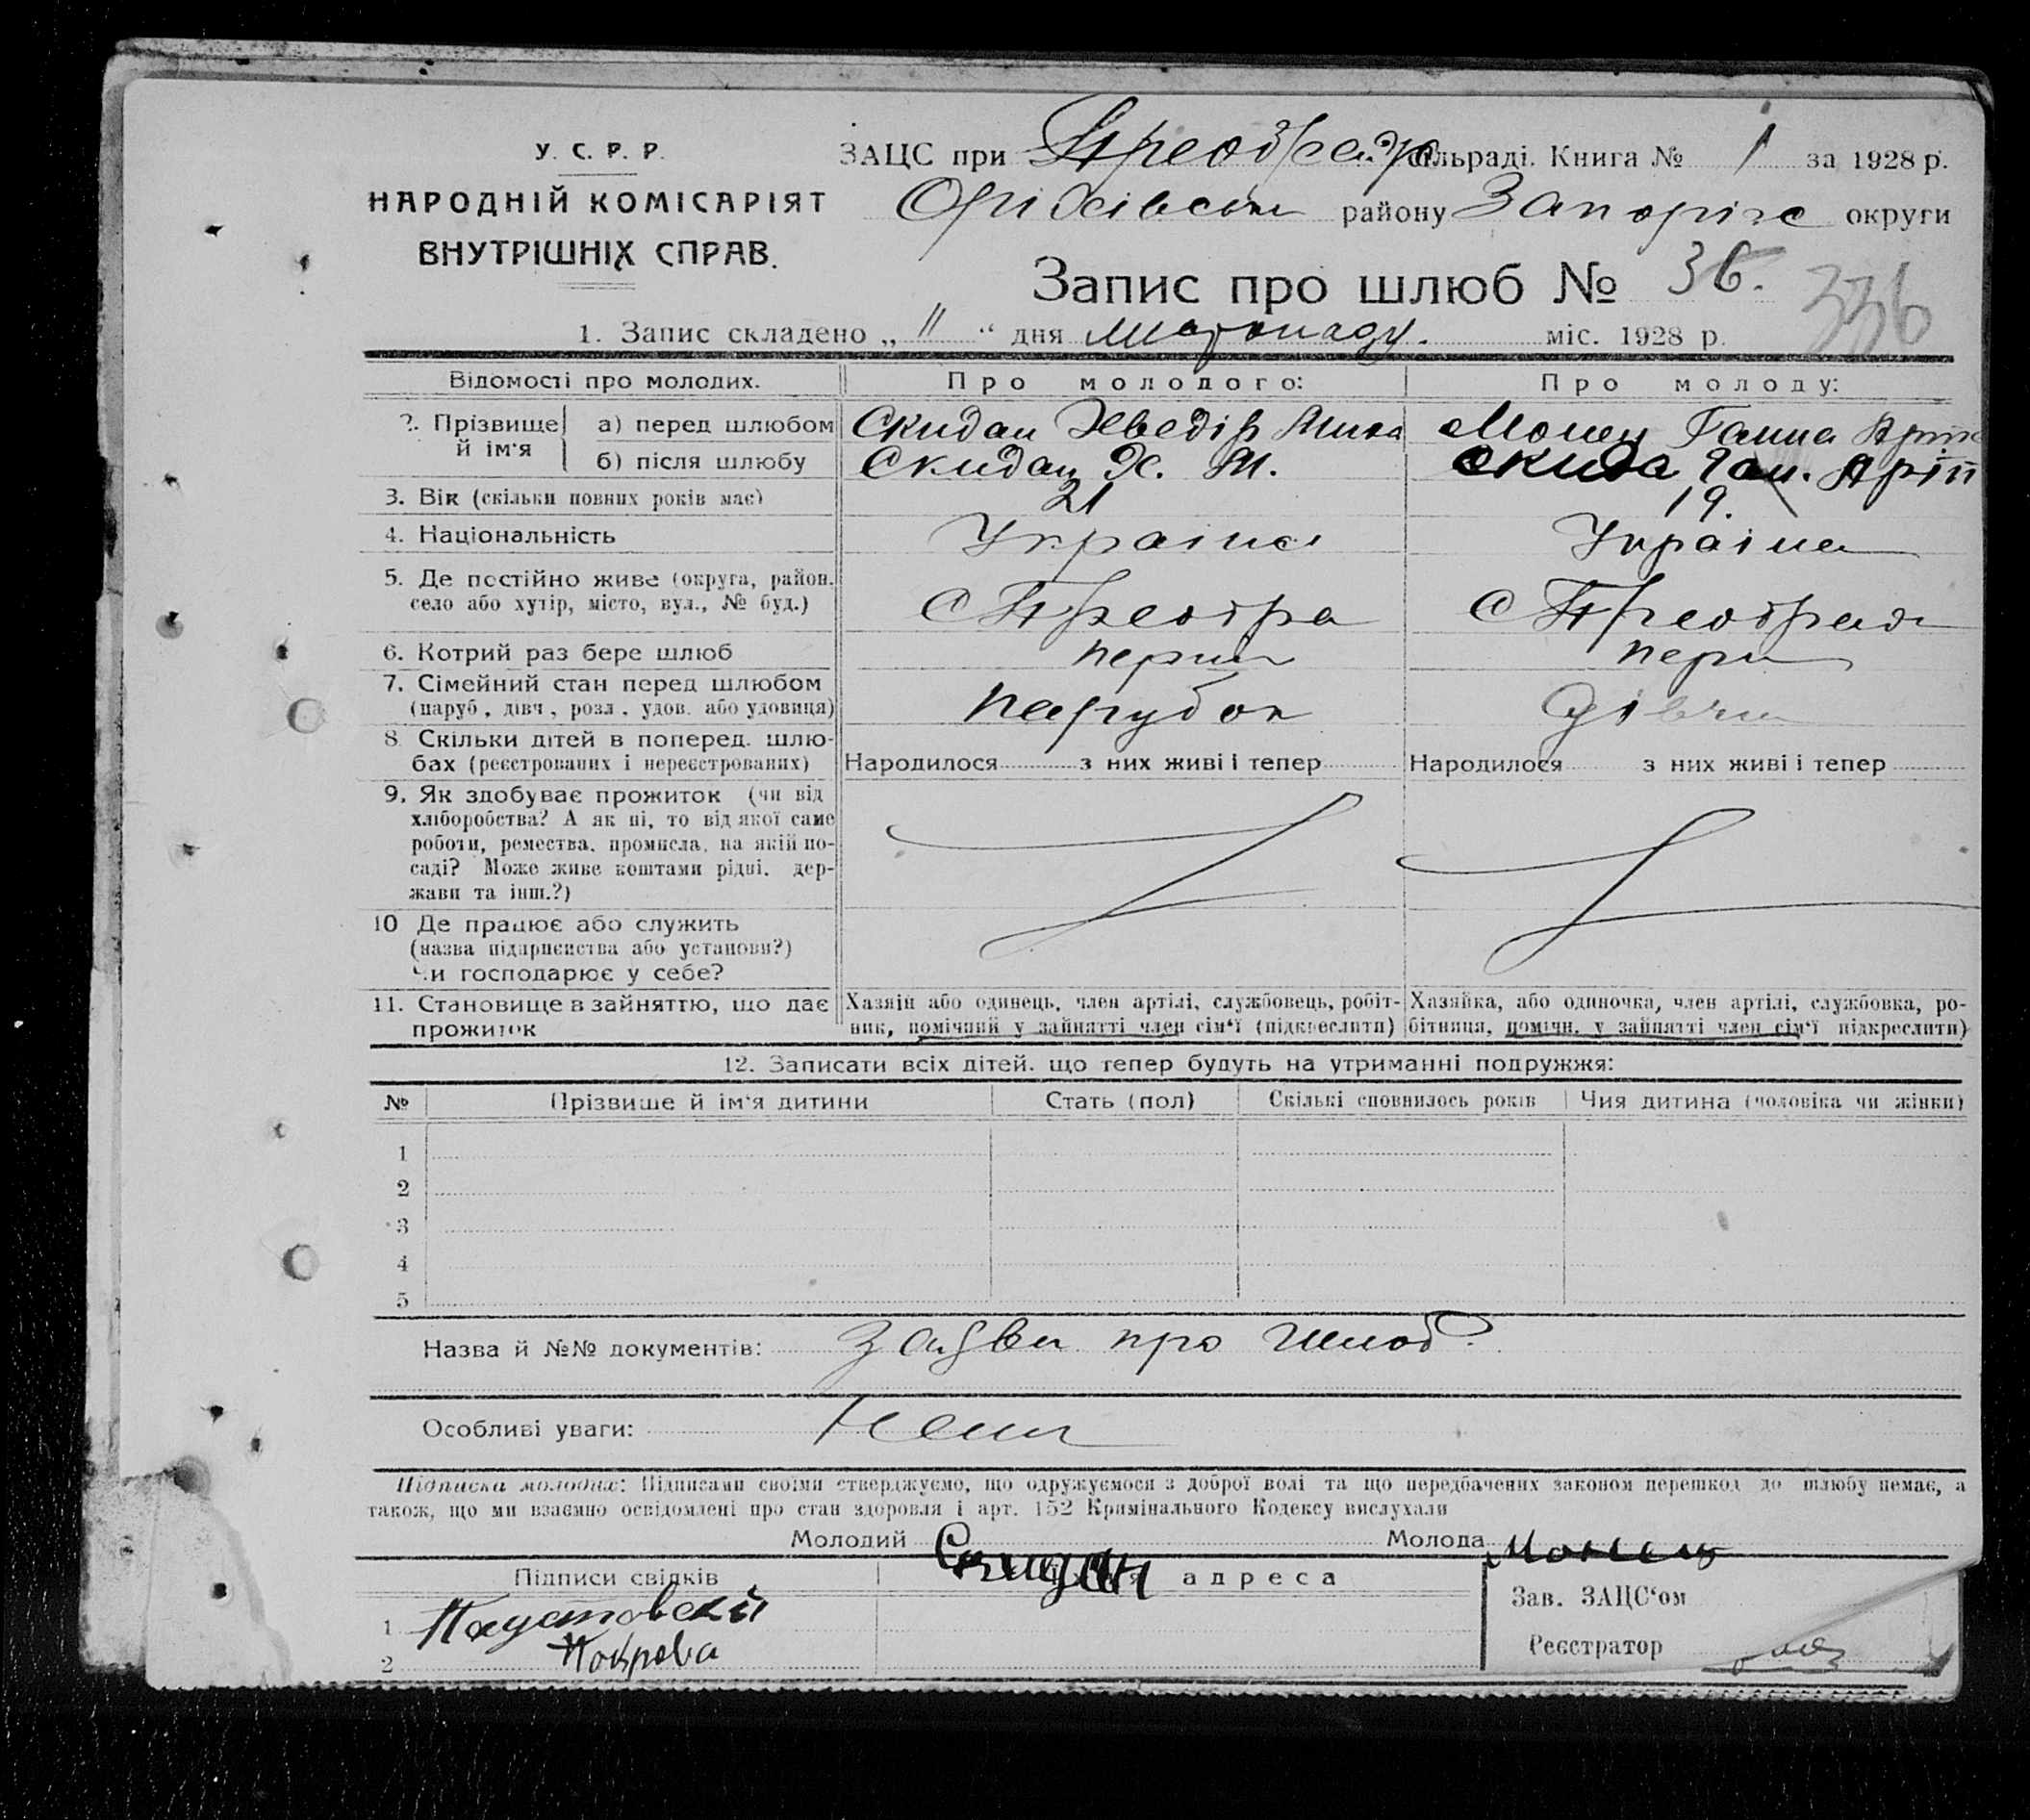 У. С. Р. Р.
НАРОДНІЙ КОМІСАРІЯТ
ВНУТРІШНІХ СПРАВ.
ЗАЦС при Преображе сільраді. Книга № 1 за 1928 р.
Оріхівськ району Запоріж округи
Запис про шлюб № 36.
336
1. Запис складено „ 11 “ дня листопаду. міс. 1928 р.
Відомості про молодих. Про молодого: Про молоду:
2. Прізвище й ім‘я а) перед шлюбом Скидан Хведір Мика Монец Ганна Арт
б) після шлюбу Скидан Х. М. Скида Ган. Арт
3. Вік (скільки повних років має) 21 19.
4. Національність Украінец Украінка
5. Де постійно живе (округа, район. село або хутір, місто, вул., № буд.) С Преобра С Преображ
6. Котрий раз бере шлюб перши перш
7. Сімейний стан перед шлюбом (паруб., дівч., розл., удов. або удовиця) парубок дівчи
8. Скільки дітей в поперед. шлюбах (реєстрованих і нереєстрованих) Народилося з них живі і тепер Народилося з них живі і тепер
9. Як здобуває прожиток (чи від хліборобства? А як ні, то від якої саме роботи, ремества, промисла, на якій посаді? Може живе коштами рідні, держави та інш.?)
10 Де працює або служить (назва підприємства або установи?) Чи господарює у себе?
11. Становище в зайняттю, що дає прожиток Хазяїн або одинець, член артілі, службовець, робітник, помічний у зайнятті член сім‘ї (підкреслити) Хазяйка, або одиночка, член артілі, службовка, робітниця, помічн. у зайнятті член сім‘ї підкреслити)
12. Записати всіх дітей, що тепер будуть на утриманні подружжя:
№ Прізвише й ім‘я дитини Стать (пол) Скількі сповнилось років Чия дитина (чоловіка чи жінки)
1
2
3
4
5
Назва й №№ документів: Заяви про шлюб.
Особливі уваги: Нема
Підписка молодих: Підписами своїми стверджуємо, що одружуємося з доброї волі та що передбачених законом перешкод до шлюбу немає, а
також, що ми взаємно освідомлені про стан здоровля і арт. 152 Кримінального Кодексу вислухали
Молодий Скидан Молода Монец
Підписи свідків адреса
Зав. ЗАЦС‘ом
1 Паустовскій
Реєстратор
2 Покрова